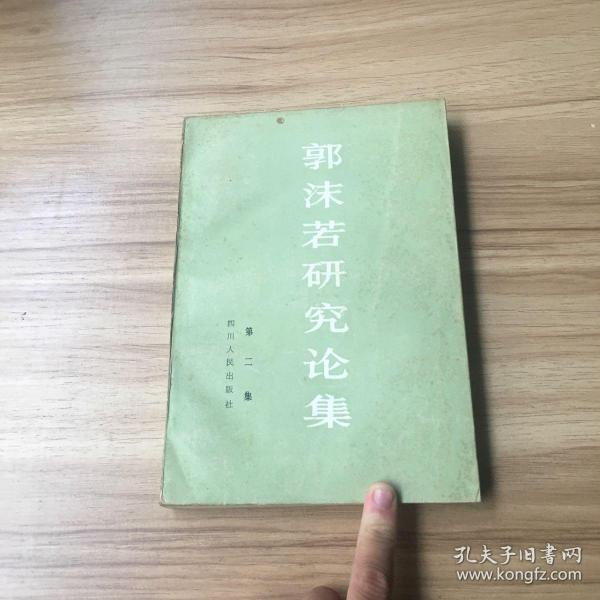 郭沫若研究论集
第二集
四川人民出版社
孔夫子旧书网
www.kongfz.com